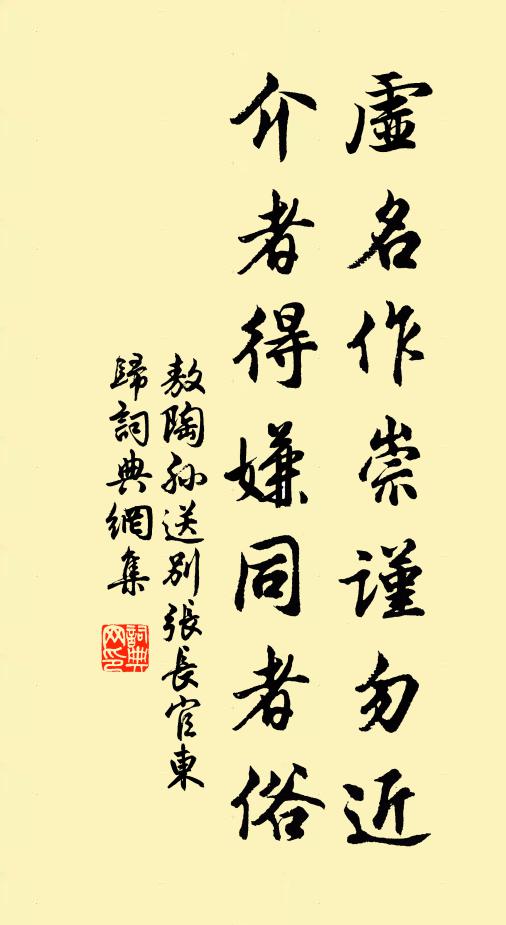 虛名作祟謹勿近
介者得嫌同者俗
敖陶孫送別張長官東
歸詞典網集
詞典網印